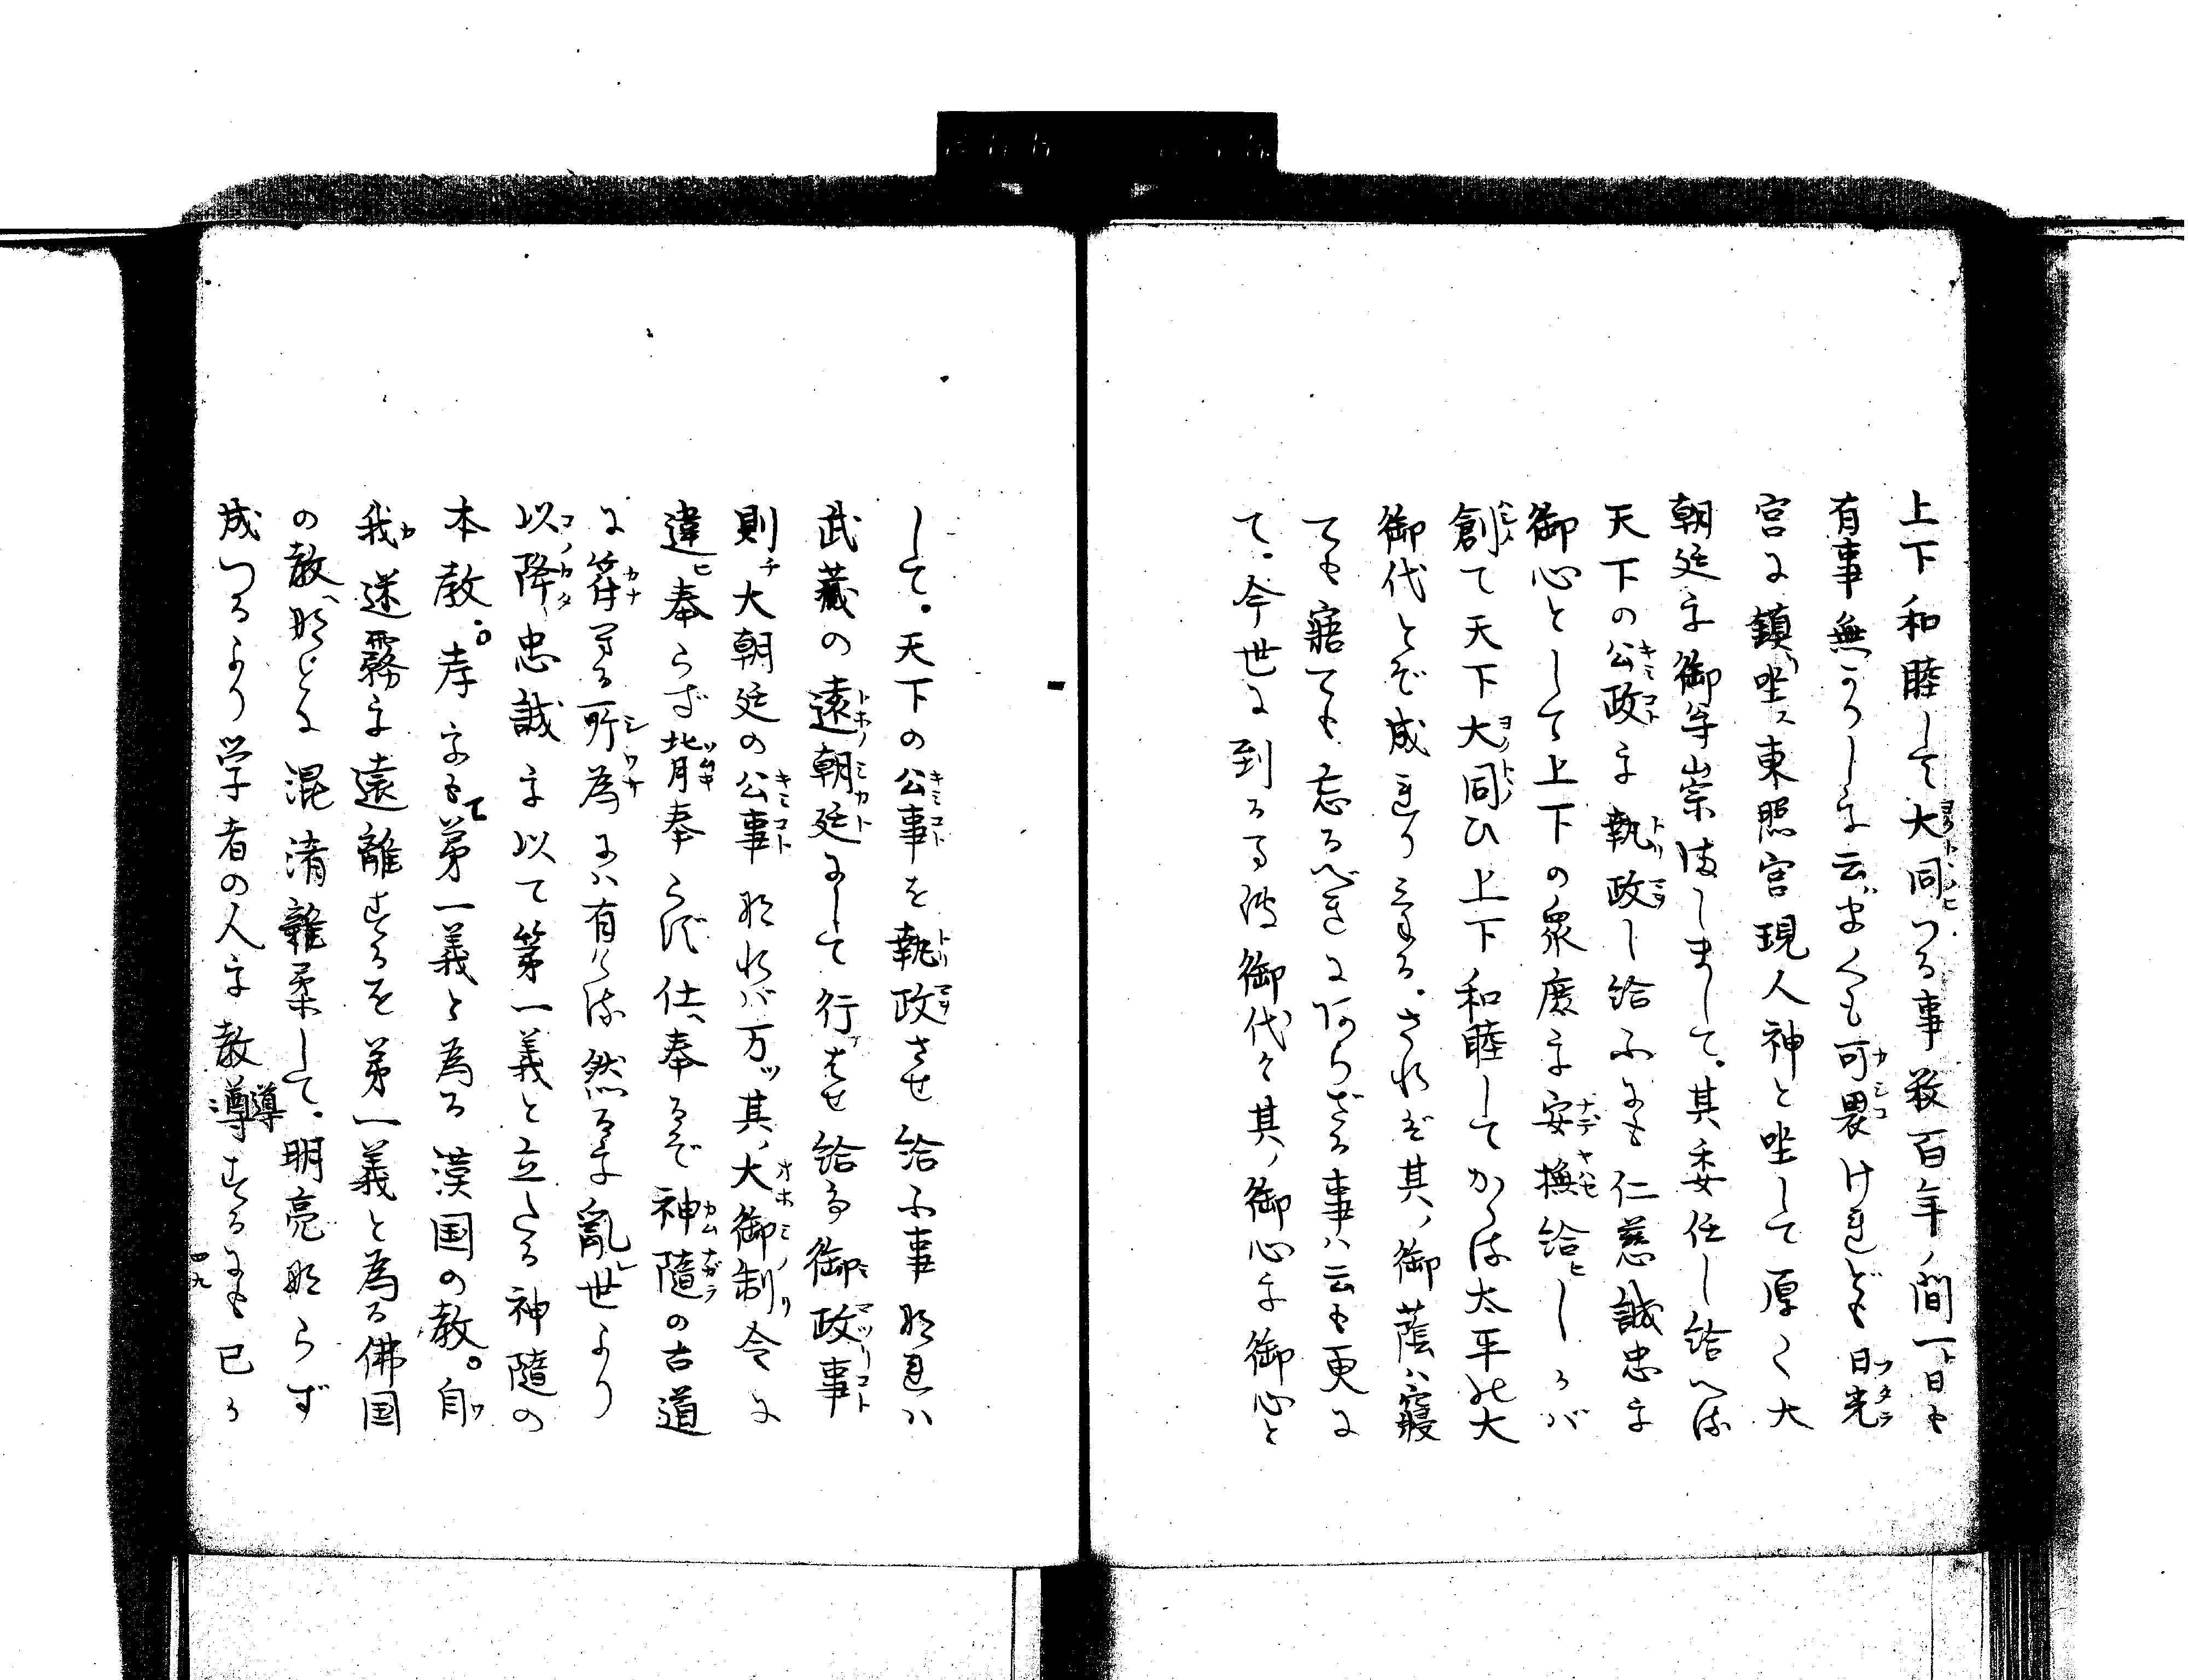 上下和睦して大同つる事数百年ノ間一日も
有事無かりしを云まくも可畏けれども日光
宮に鎮坐ス東照宮現人神と坐して厚く大
朝廷を御尊崇ましまして。其委任し給へる
天下の公政を執政し給ふにも仁慈誠忠を
御心として上下の衆庶を安撫給ヒしかバ
創て天下大同ひ上下和睦してかゝる太平の大
御代とぞ成れりける。されば其ノ御蔭ハ寝
ても寤ても忘るべきにあらざる事ハ云も更に
て。今世に到るまで御代々其ノ御心を御心と
して。天下の公事を執政させ給ふ事なれハ
武蔵の遠朝廷にして行はせ給ふ御政事
則チ大朝廷の公事なれバ万ッ其ノ大御制令に
違ヒ奉らず背奉らで仕へ奉るぞ神隨の古道
に符する所為にハ有ける然るを亂レ世より
以降忠誠を以て第一義と立たる神隨の
本教。孝をもて第一義と為る漢国の教。自
我迷霧を遠離するを第一義と為る佛国
の教へなどに混淆雜柔して。明亮ならず
成つるより学者の人を教導するにも己か
導
四九